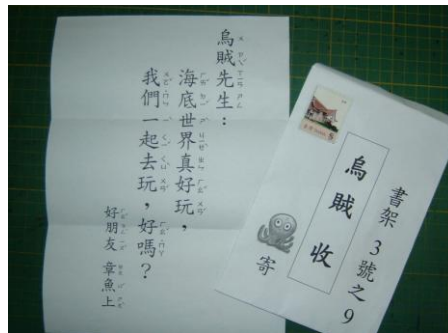 烏賊先生：
海底世界真好玩，
我們一起去玩，好嗎？
好朋友 章魚上
書架3號之9
烏賊 收
寄